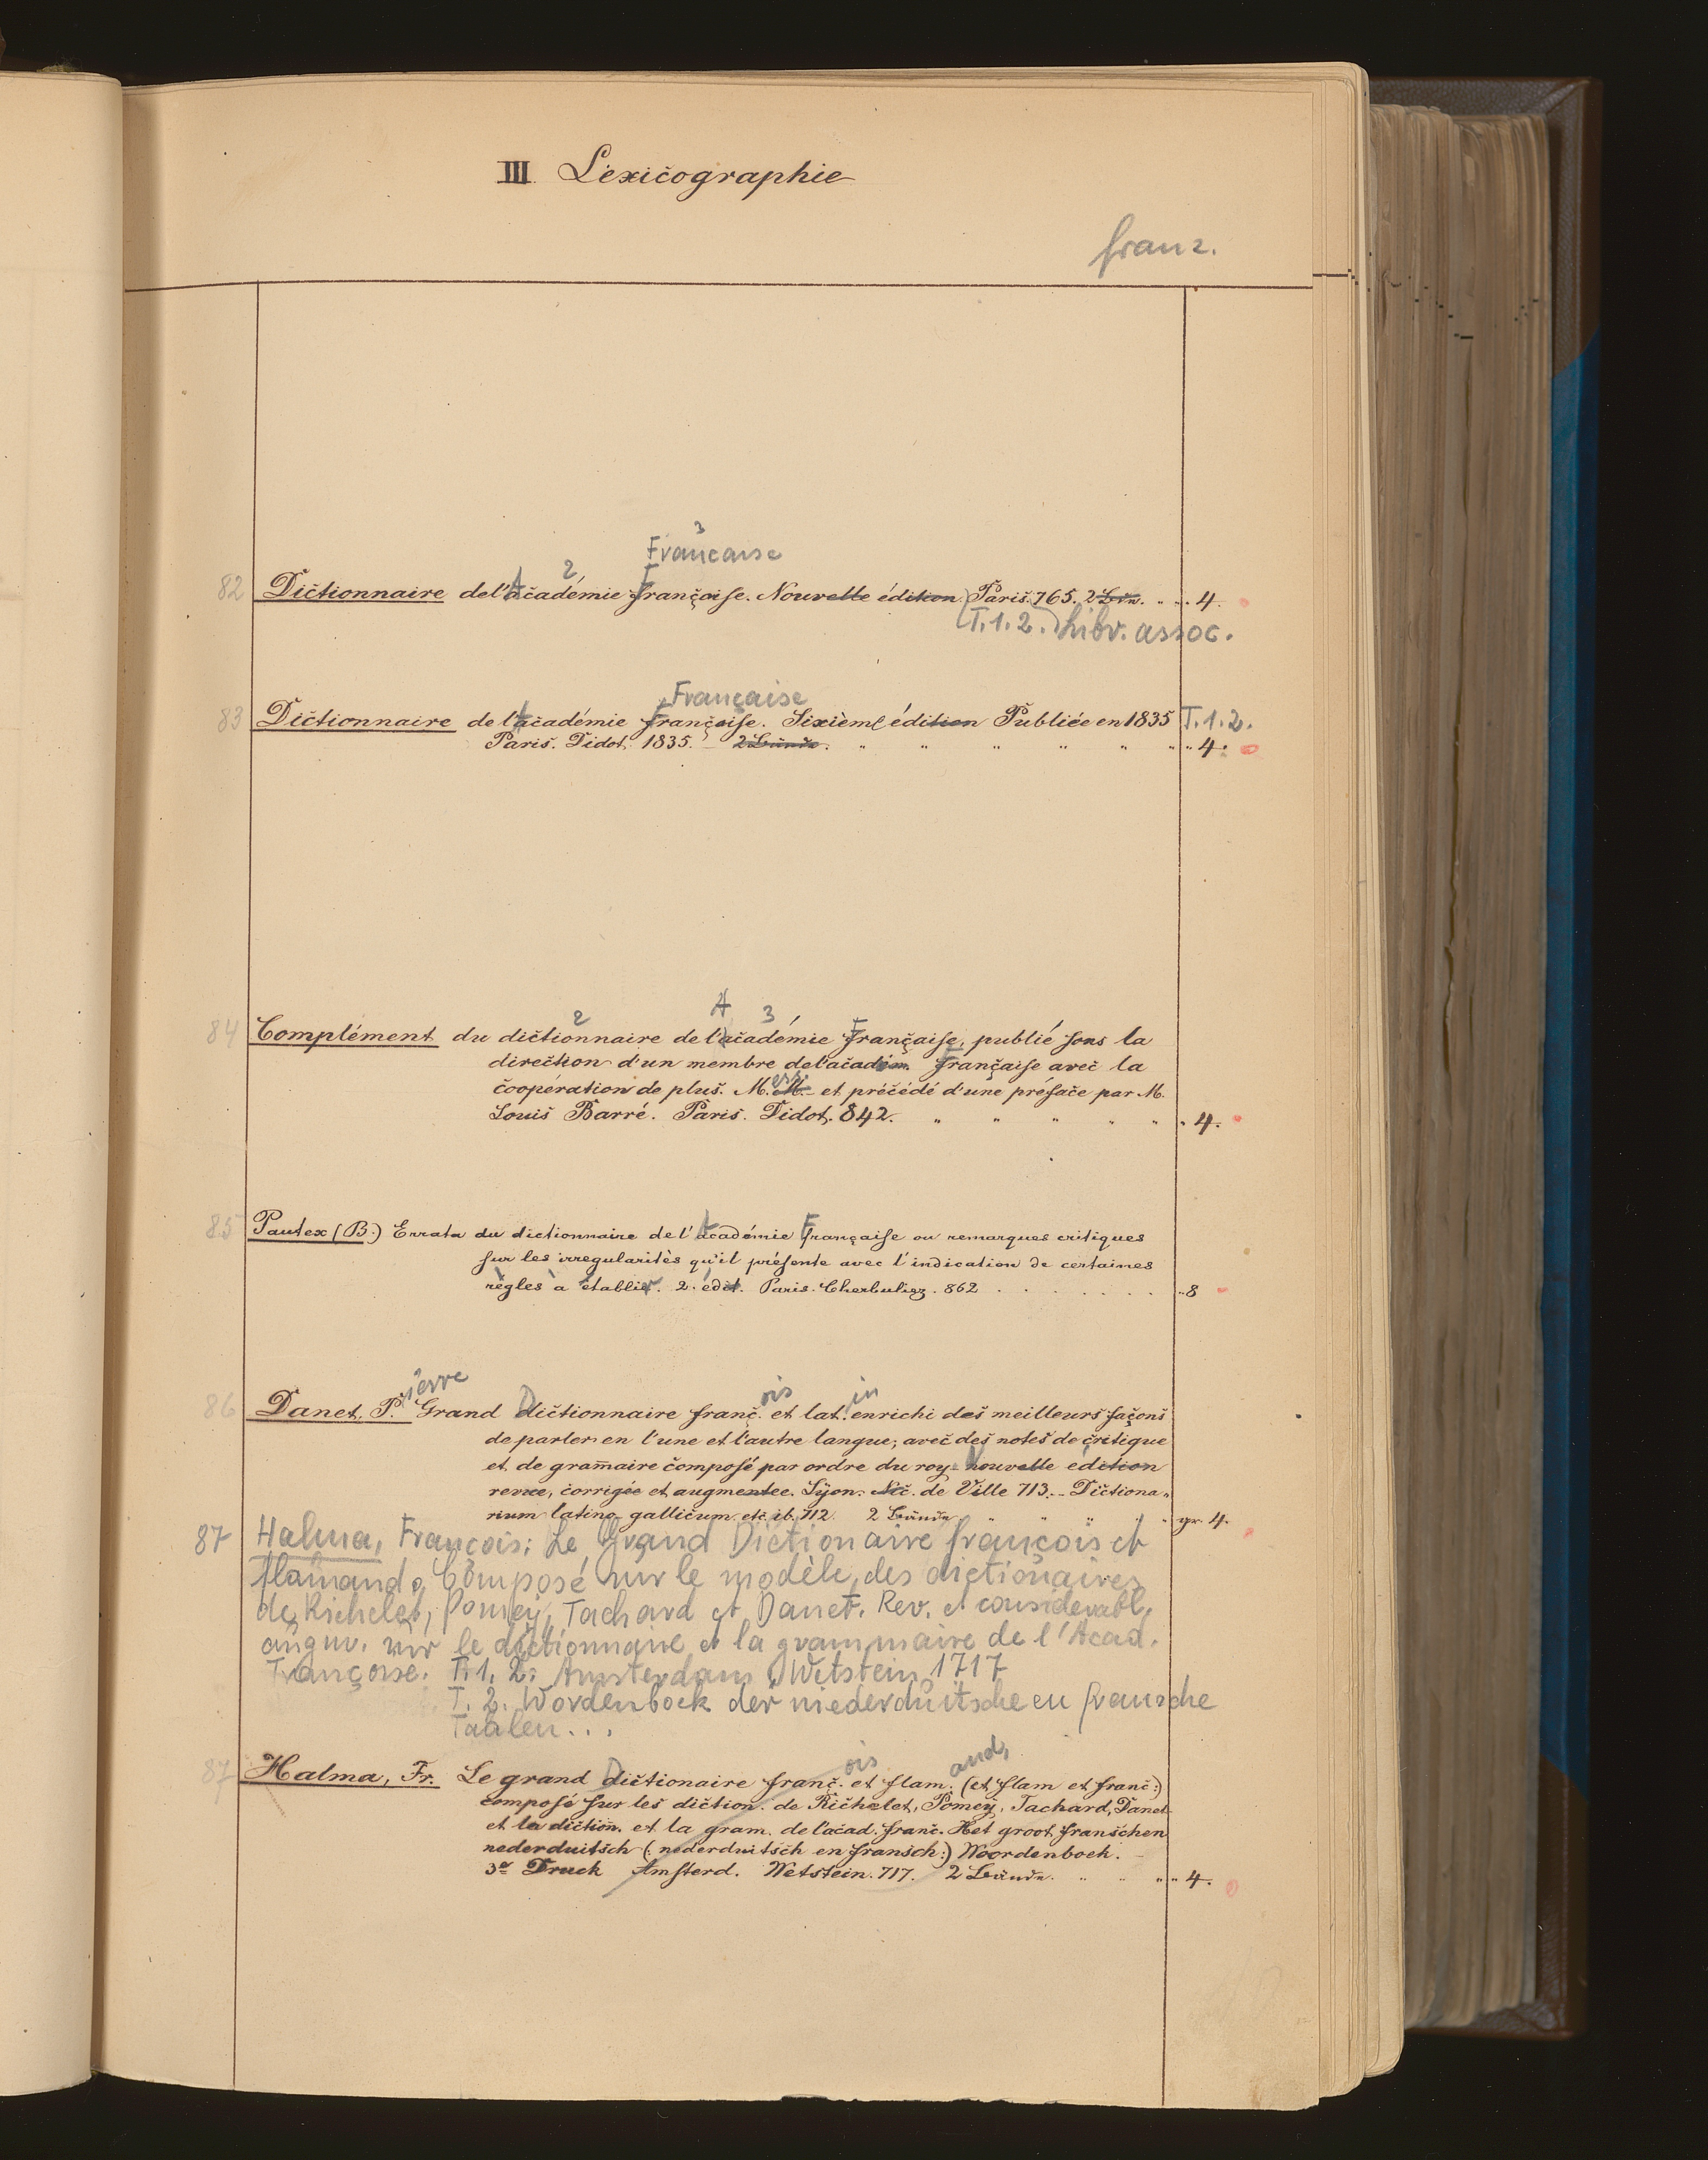 III. Lexicographie
franz.
3
Française
2
82 Dictionnaire de l'Académie Françoise. Nouvelle édition Paris. 765. 2 Bde. 4.
(T. 1. 2.) Libr. assoc.
Française
83 Dictionnaire de l'Académie Françoise. Sixième édition Publiée en 1835 T. 1. 2.
Paris. Didot. 1835. 2 Bände. " " " " " " 4.
2 A 3
84 Complément du dictionnaire de l'académie Française, publié sous la
direction d'un membre de l'académ. Française avec la
coopération de plus. M.M. et précédé d'une préface par M.
Louis Barré. Paris. Didot. 842. " " " " " " 4.
85 Pautex (B.) Errata du dictionnaire de l'Académie Française ou remarques critiques
sur les irregularités qu'il présente avec l'indication de certaines
règles à établir. 2. édit. Paris. Cherbuliez. 862 . . . . . . . " 8
ierre ois in
86 Danet, P. Grand Dictionnaire franç. et lat. enrichi des meilleurs façons
de parler en l'une et l'autre langue; avec des notes de critique
et de gram̄aire composé par ordre du roy. Nouvelle édition
revue, corrigée et augmentée. Lyon. Nic. de Ville 713. - Dictiona-
rium latino-gallicum etc. ib. 712. 2 Bände " " " " gr. 4.
87 Halma, François: Le Grand Dictionaire françois et
flamand. Composé sur le modèle des dictionaires
de Richelet, Pomey, Tachard et Danet. Rev. et considerabl.
augm. sur le dictionnaire et la grammaire de l'Acad.
Françoise. T. 1. 2. Amsterdam, Wetstein 1717
T. 2. Wordenboek der niederduitsche en fransche
Taalen...
ois and,
87 Halma, Fr. Le grand Dictionaire franç. et flam. (et flam et franç:)
composé sur les diction. de Richelet, Pomey, Tachard, Danet
et la diction. et la gram. de l'acad. franç. Het groot franschen
nederduitsch (: nederduitsch en fransch:) Woordenboek. -
3e Druck Amsterd. Wetstein. 717. 2 Bände. " " " " 4.